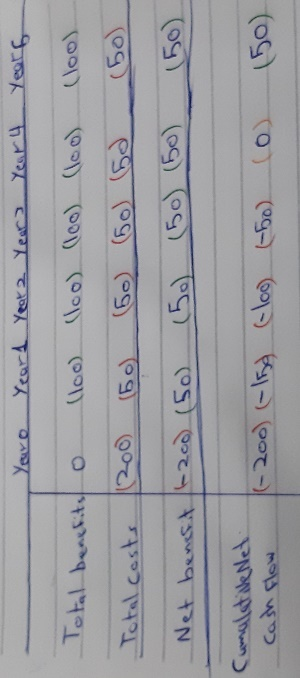 Year0 Year1 Year2 Year3 Year4 Year5
Total benefits 0 (100) (100) (100) (100) (100)
Total costs (200) (50) (50) (50) (50) (50)
Net benefit (-200) (50) (50) (50) (50) (50)
Cumulative Net
Cash flow (-200) (-150) (-100) (-50) (0) (50)